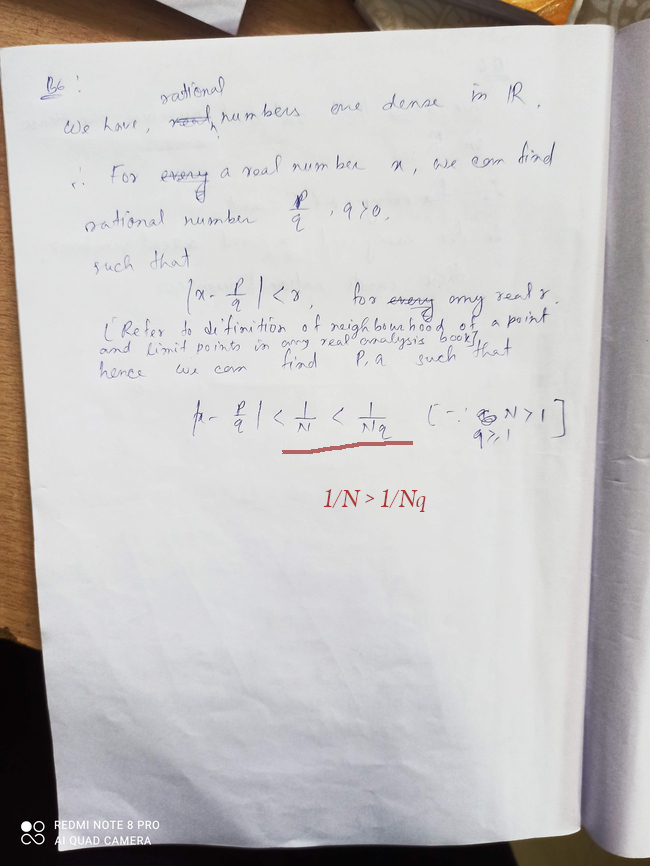 B6:
rational
We have, real, numbers are dense in IR.
∴ For every a real number x, we can find
rational number P/q, q>0,
such that
|x - P/q| < r, for every any real r.
[Refer to definition of neighbourhood of a point
and limit points in any real analysis book],
hence we can find P, q such that
|x - P/q| < 1/N < 1/Nq [∵ N>1
q≥1]
1/N > 1/Nq
REDMI NOTE 8 PRO
AI QUAD CAMERA